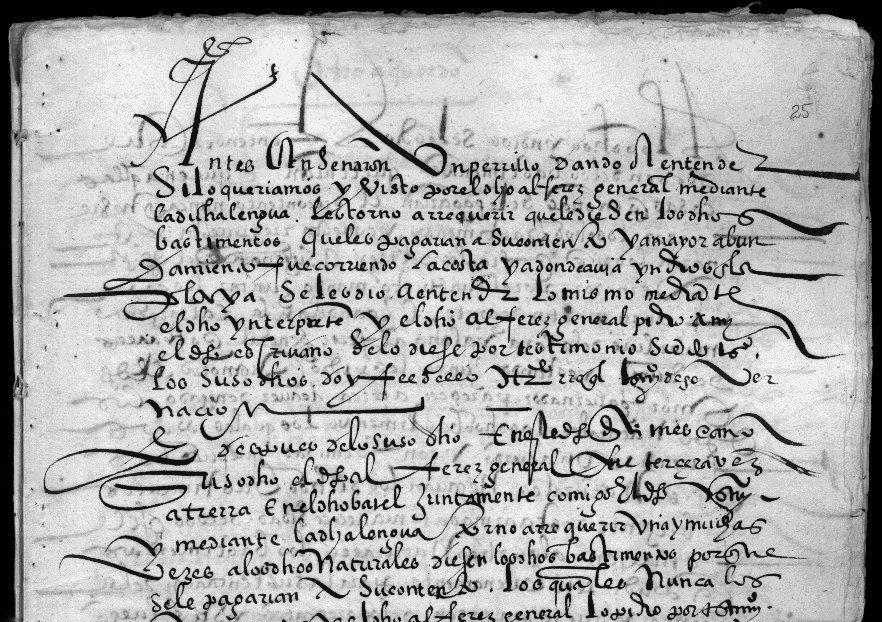 25
antes enseñaron un perrillo dando a entender
si lo queriamos y visto por el dho alferez general mediante
la dicha lengua les torno a rrequerir que le diesen los dhos
bastimentos que les pagarian a su contento y a mayor abun
damiento fue corriendo la costa y adonde avia yndios en la
playa se les dio a entender lo mismo mediante
el dho ynterprete y el dho alferez general pidio a my
el dho escrivano se lo diese por testimonio siendo tos
los susodhos doy fee dello
nacion
despues de lo suso dho en el dho dia mes e año
susodho el dho alferez general fue tercera vez
a tierra en el dho batel juntamente comigo el dho
y mediante la dha lengua torno a rrequerir una y muchas
vezes a los dhos naturales diesen los dhos bastimentos porque
se le pagarian a su contento los quales nunca los
el dho alferez general lo pidio por testimo